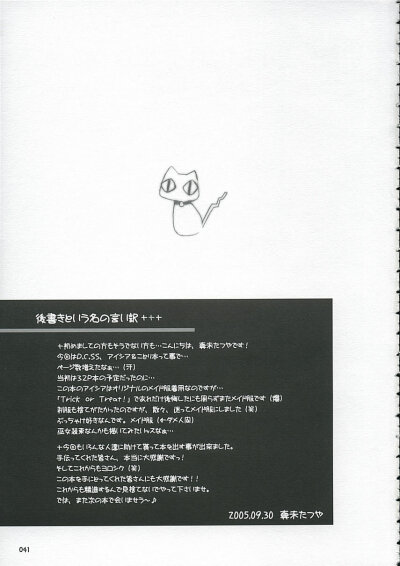 後書きという名の言い訳 +++
+初めましての方もそうでない方も…こんにちは、森末たつやです！
今回はD.C.S.S. アイシア&ことり本って事で…
ページ数増えたなぁ…（汗）
当初は32P本の予定だったのに…
この本のアイシアはオリジナルのメイド服着用なのですが…
「Trick or Treat!」であれだけ後悔したにも関らずまたメイド服です（爆）
制服も捨てがたかったのですが、散々、迷ってメイド服にしました（笑）
ぶっちゃけ好きなんです。メイド服（←ダメ人間）
巫女装束なんかも描いてみたいっスなぁ…
+今回もいろんな人達に助けて貰って本を出す事が出来ました。
手伝ってくれた皆さん、本当に大感謝ですっ！
そしてこれからもヨロシク（笑）
この本を手にとってくれた皆さんにも大感謝です！！
これからも精進するんで見捨てないでやって下さいませ。
では、また次の本で会いませう～♪
2005.09.30 森末たつや
041